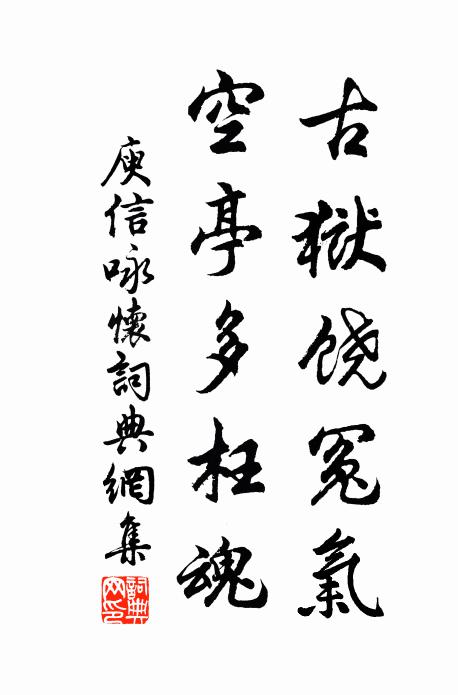 古獄饶冤氣
空亭多枉魂
庾信咏懷詞典網集
詞典網印